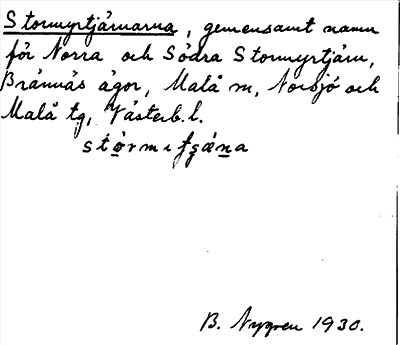 Stormyrtjärnarna, gemensamt namn
för Norra och Södra Stormyrtjärn,
Brännäs ägor, Malå m, Norsjö och
Malå tg, Västerb.l.
B. Nygren 1930.